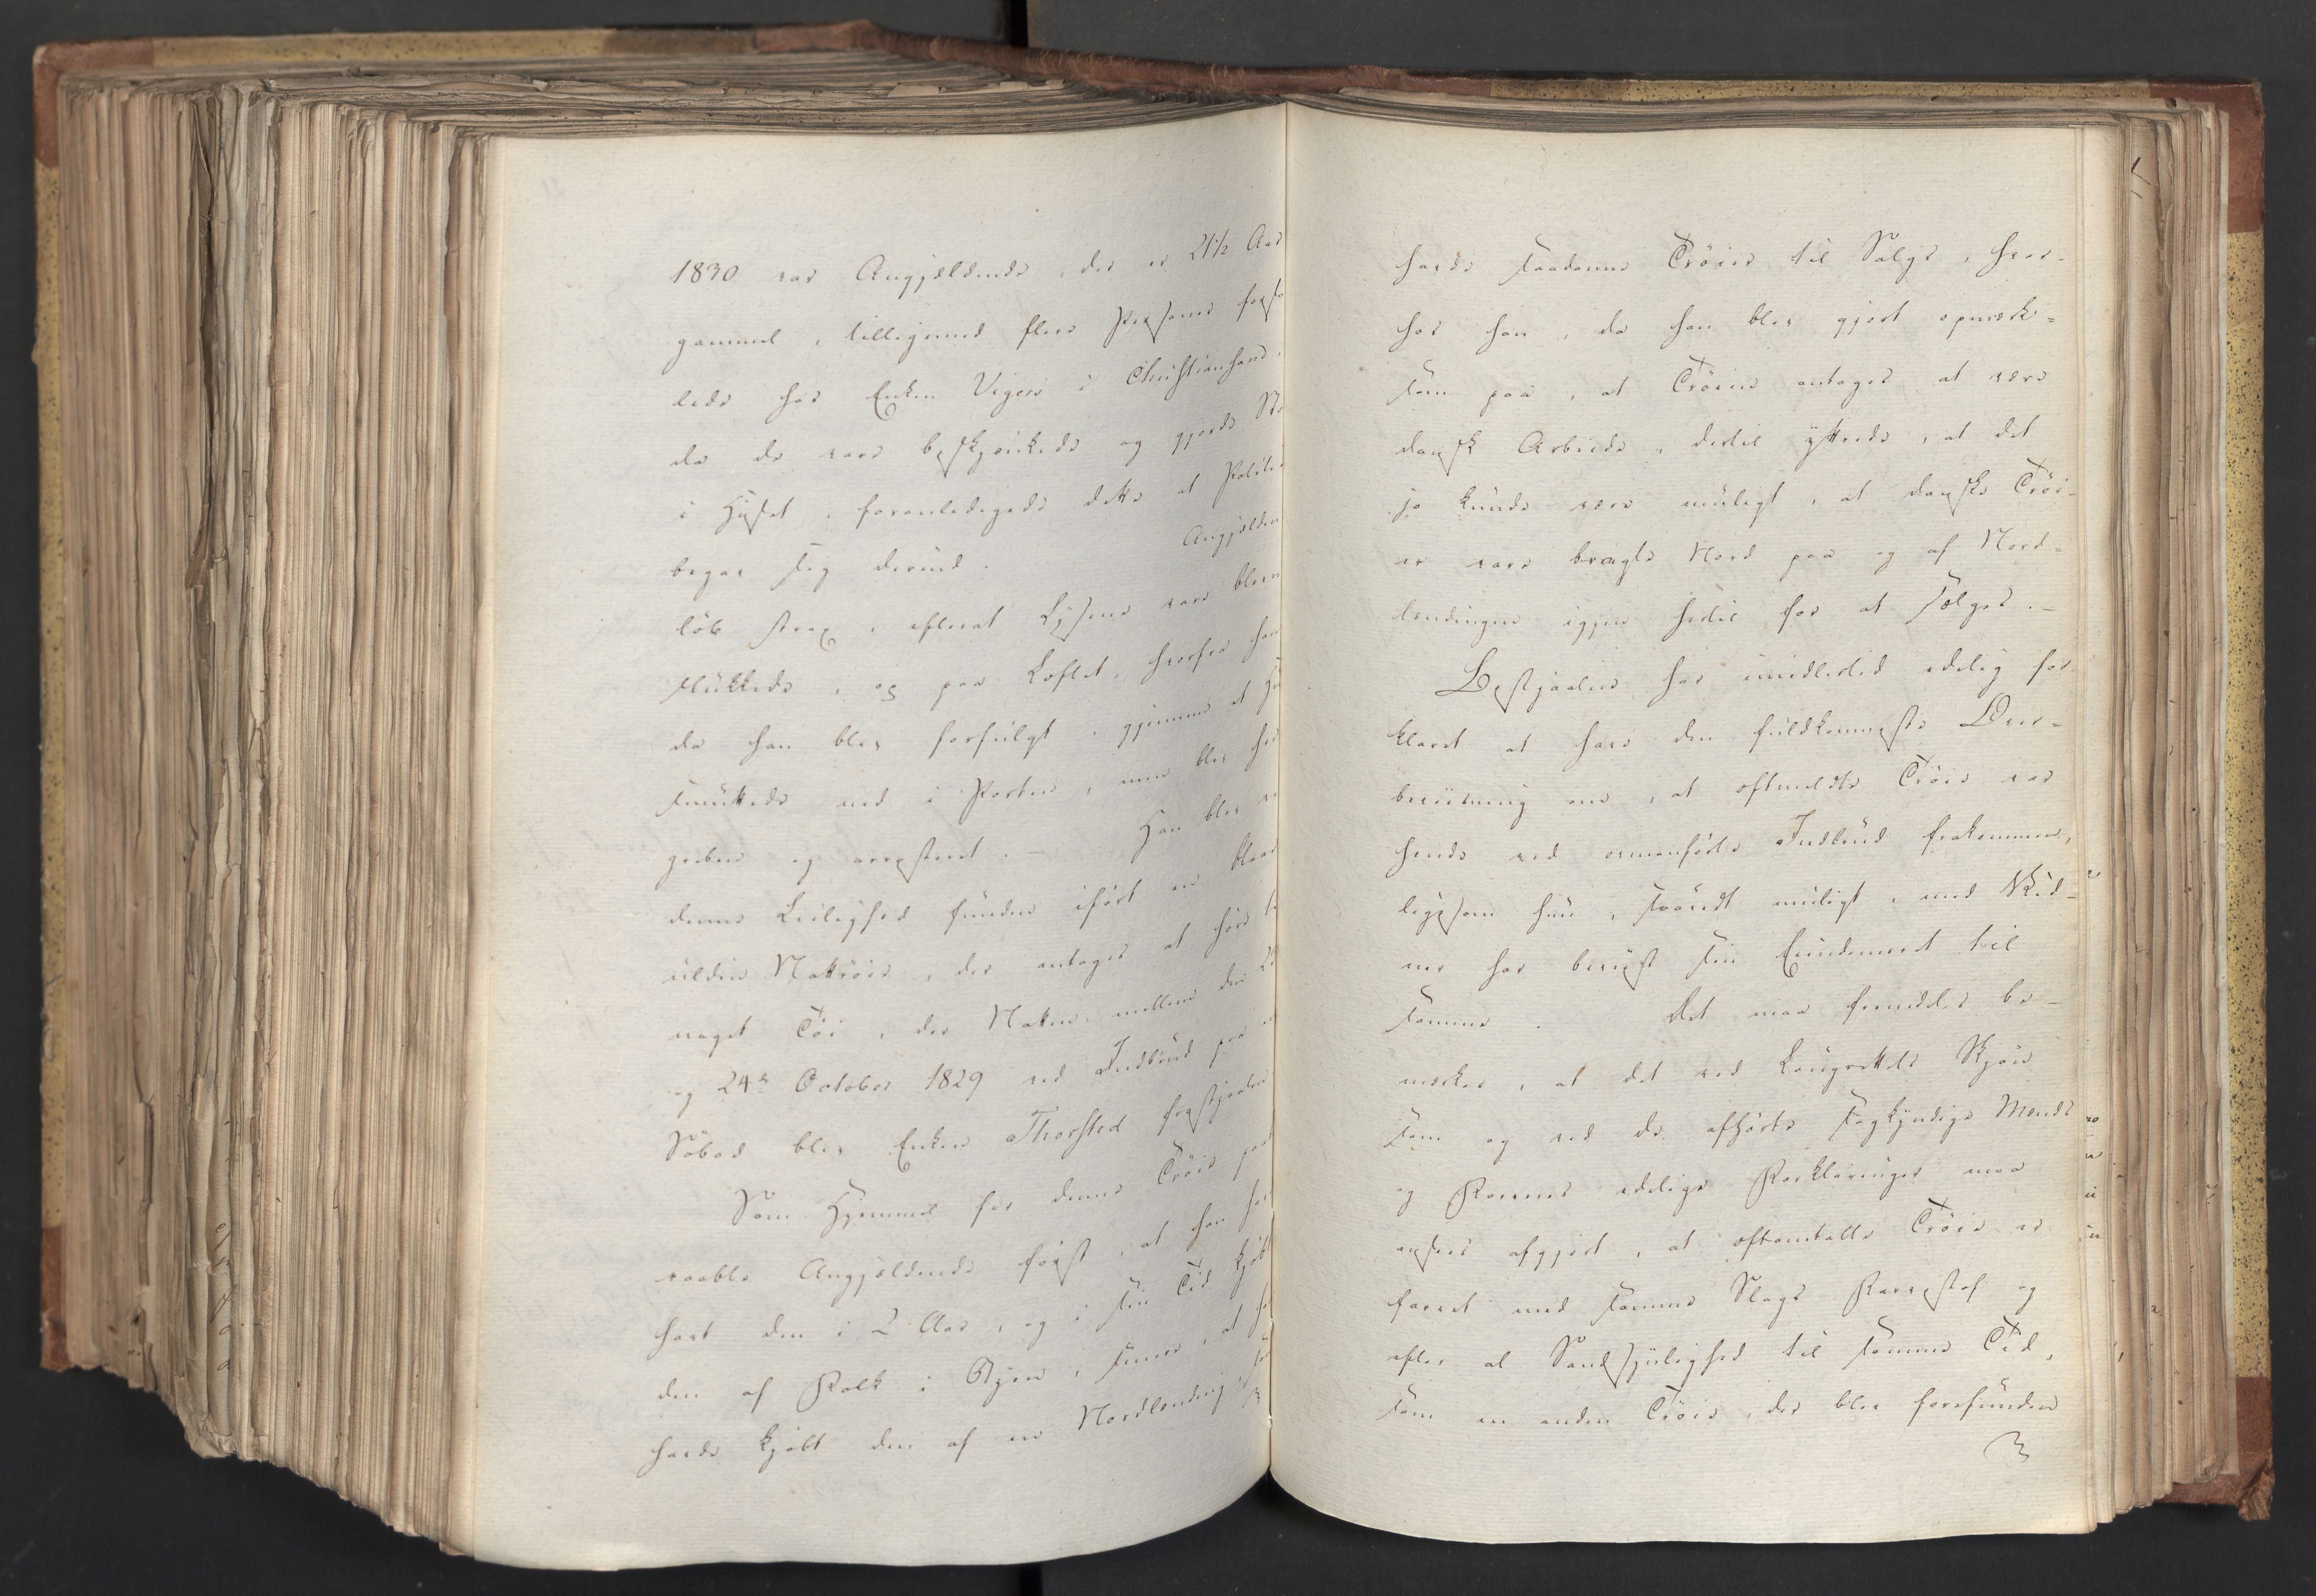 1830 var Angjældende, der er 21½ Aar
gammel, tilligemed flere Personer forsa
lede hos Enken Vigers i Christianssand,
da de vare beskjænkede og gjorde St
i Huset, foranledigede dette at Politi
begav sig derind. Angjælden
løb strax, efterat Lysene vare bleve
slukkede, op paa Loftet, hvorfra han
da han blev forfulgt, gjennem et
smuttede ned i Porten, men blev her
greben og arresteret. – Han blev v
denne Leilighed funden iført en blaae
ulden Nattrøie, der antages at høre
noget Tøi, der Natten mellem den 23
og 24de October 1829 ved Indbrud paa
Søbod blev Enken Thorsted frastjaalet
Som Hjemmel for denne Trøie paa
raabte Angjældende først, at han har
havt den i 2 Aar, og i sin Tid kjøbt
den af Folk i Byen, senere, at han
havde kjøbt den af en Nordlænding,
havde saadanne Trøier til Salgs, hvor-
hos han, da han blev gjort opmærk-
som paa, at Trøien antages at være
dansk Arbeide, dertil yttrede, at det
jo kunde være muligt, at danske Trøi-
er vare bragte Nord paa og af Nord-
lændingen igjen hertil for at sælges. –
Bestjaalne har imidlertid edelig for-
klaret at have den fuldkomneste Over-
beviisning om, at oftmeldte Trøie var
hende ved ovenanførte Indbrud frakommen,
ligesom hun, saavidt muligt, med Vid-
ner har beviist sin Eiendomsret til
samme. Det maa fremdeles be-
mærkes, at det ved Laugrettets Skjøn
som og ved de afhørte sagkyndige Mænds
og Konens edelige Forklaringer maa
ansees afgjort, at oftomtalte Trøie er
farvet med samme Slags Farvestof og
efter al Sandsynlighed til samme Tid,
som en anden Trøie, der blev forefunden